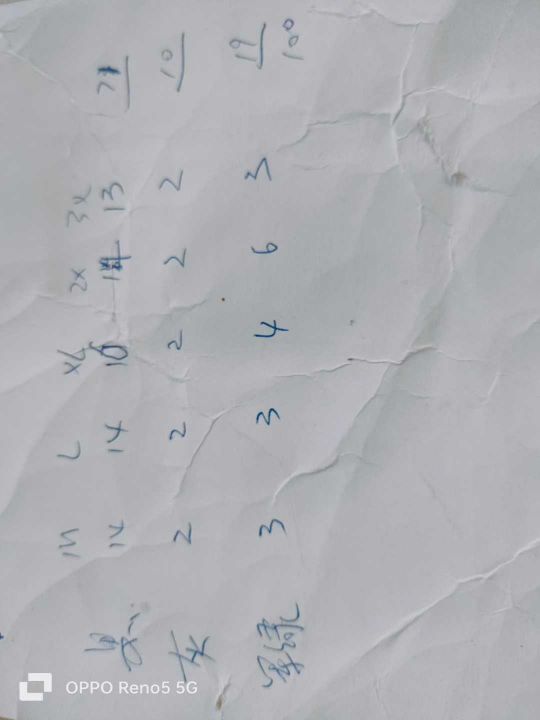 M L XL 2X 3X
黑 14 14 10 13 71
灰 2 2 2 2 2 10
军绿 3 3 4 6 3 19
100
OPPO Reno5 5G